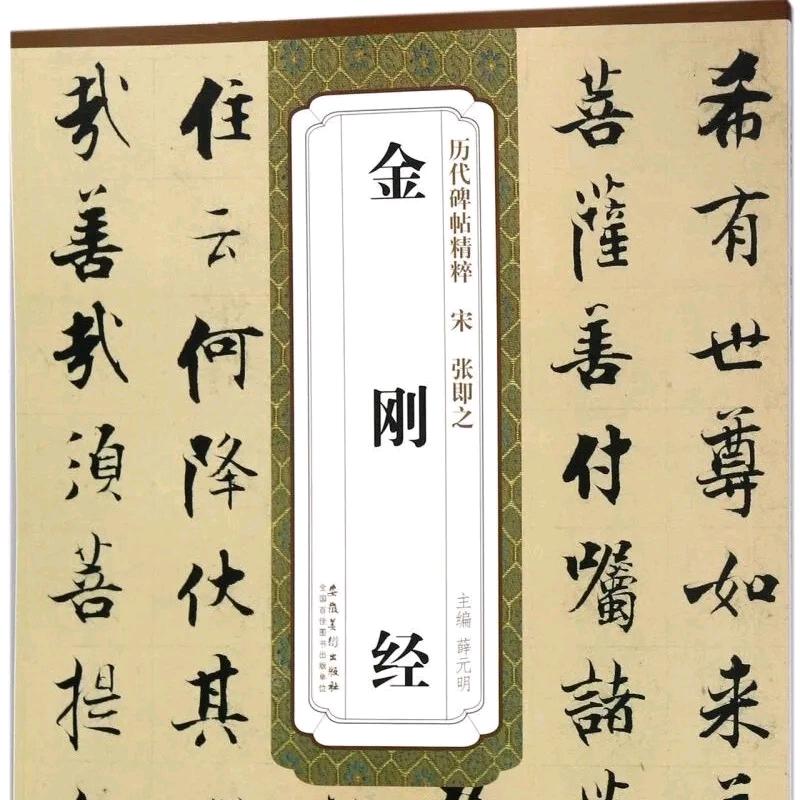 希有世尊如来
菩薩善付囑諸
历代碑帖精粹 宋 张即之
主编 薛元明
金刚经
安徽美术出版社
全国百佳图书出版单位
住云何降伏其
哉善哉湏菩提